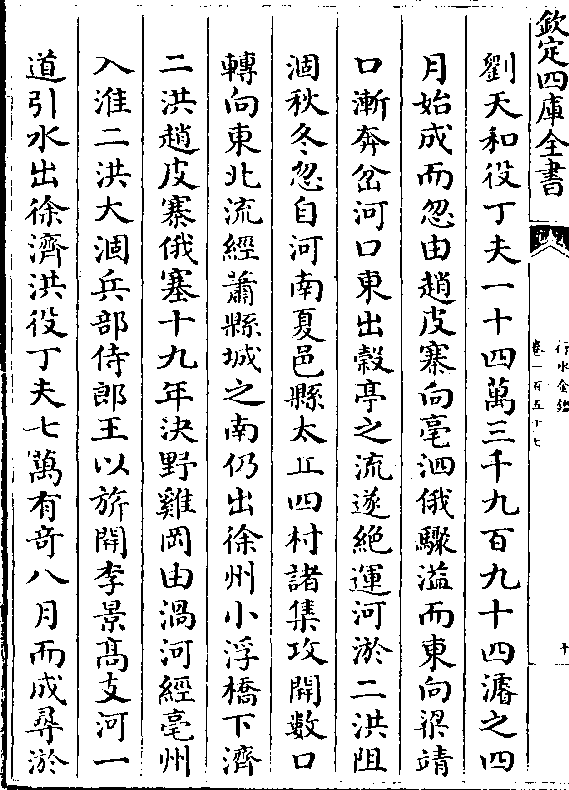 欽定四庫全書
行水金鑑
卷一百五十七
十
劉天和役丁夫一十四萬三千九百九十四濬之四
月始成而忽由趙皮寨向亳泗俄驟溢而東向梁靖
口漸奔岔河口東出穀亭之流遂絶運河淤二洪阻
涸秋冬忽自河南夏邑縣太丘四村諸集攻開數口
轉向東北流經蕭縣城之南仍出徐州小浮橋下濟
二洪趙皮寨俄塞十九年決野雞岡由渦河經亳州
入淮二洪大涸兵部侍郎王以旂開李景髙支河一
道引水出徐濟洪役丁夫七萬有竒八月而成尋淤